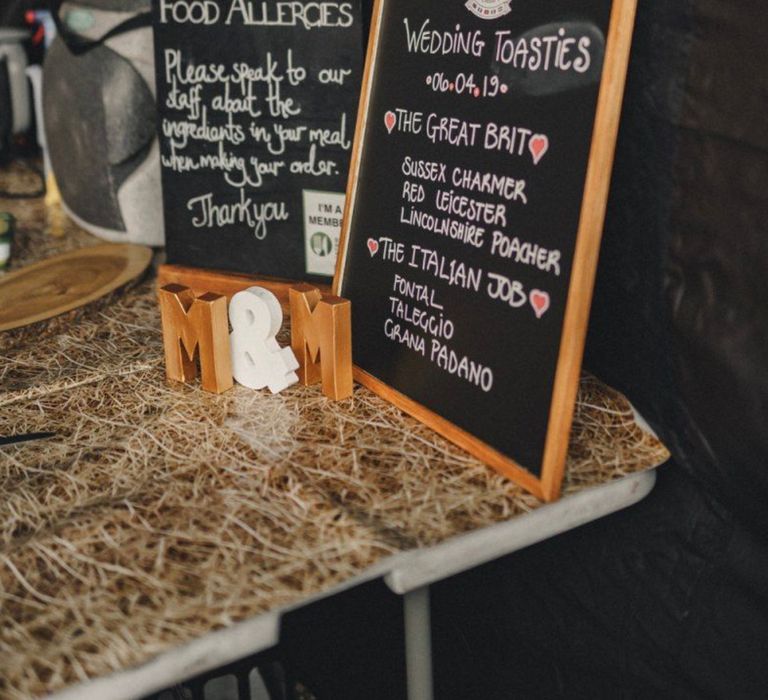 FOOD ALLERGIES
Please, speak to our
staff, about the
ingredients in your meal
when making your order.
Thank you
I'M A
MEMBE
WEDDING TOASTIES
•06.04.19•
THE GREAT BRIT
SUSSEX CHARMER
RED LEICESTER
LINCOLNSHIRE POACHER
THE ITALIAN JOB
FONTAL
TALEGGIO
GRANA PADANO
M&M